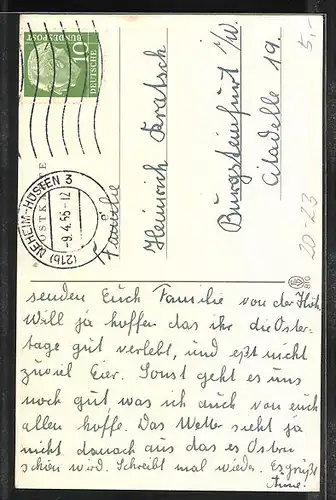 5,-
10
DEUTSCHE
BUNDESPOST
POSTKARTE
(21b) NEHEIM-HÜSTEN 3
-9.4.55-12
a
Familie
Heinrich Kratsch
Burgsteinfurt i/W.
Citadelle 19.
20-23
810
senden Euch Familie von der
Will ja hoffen das ihr die Oster-
tage gut verlebt, und eßt nicht
zuviel Eier. Sonst geht es uns
noch gut was ich auch von euch
allen hoffe. Das Wetter sieht ja
nicht danach aus das es Ostern
schön wird. Schreibt mal wieder. Es grüßt
Anne.